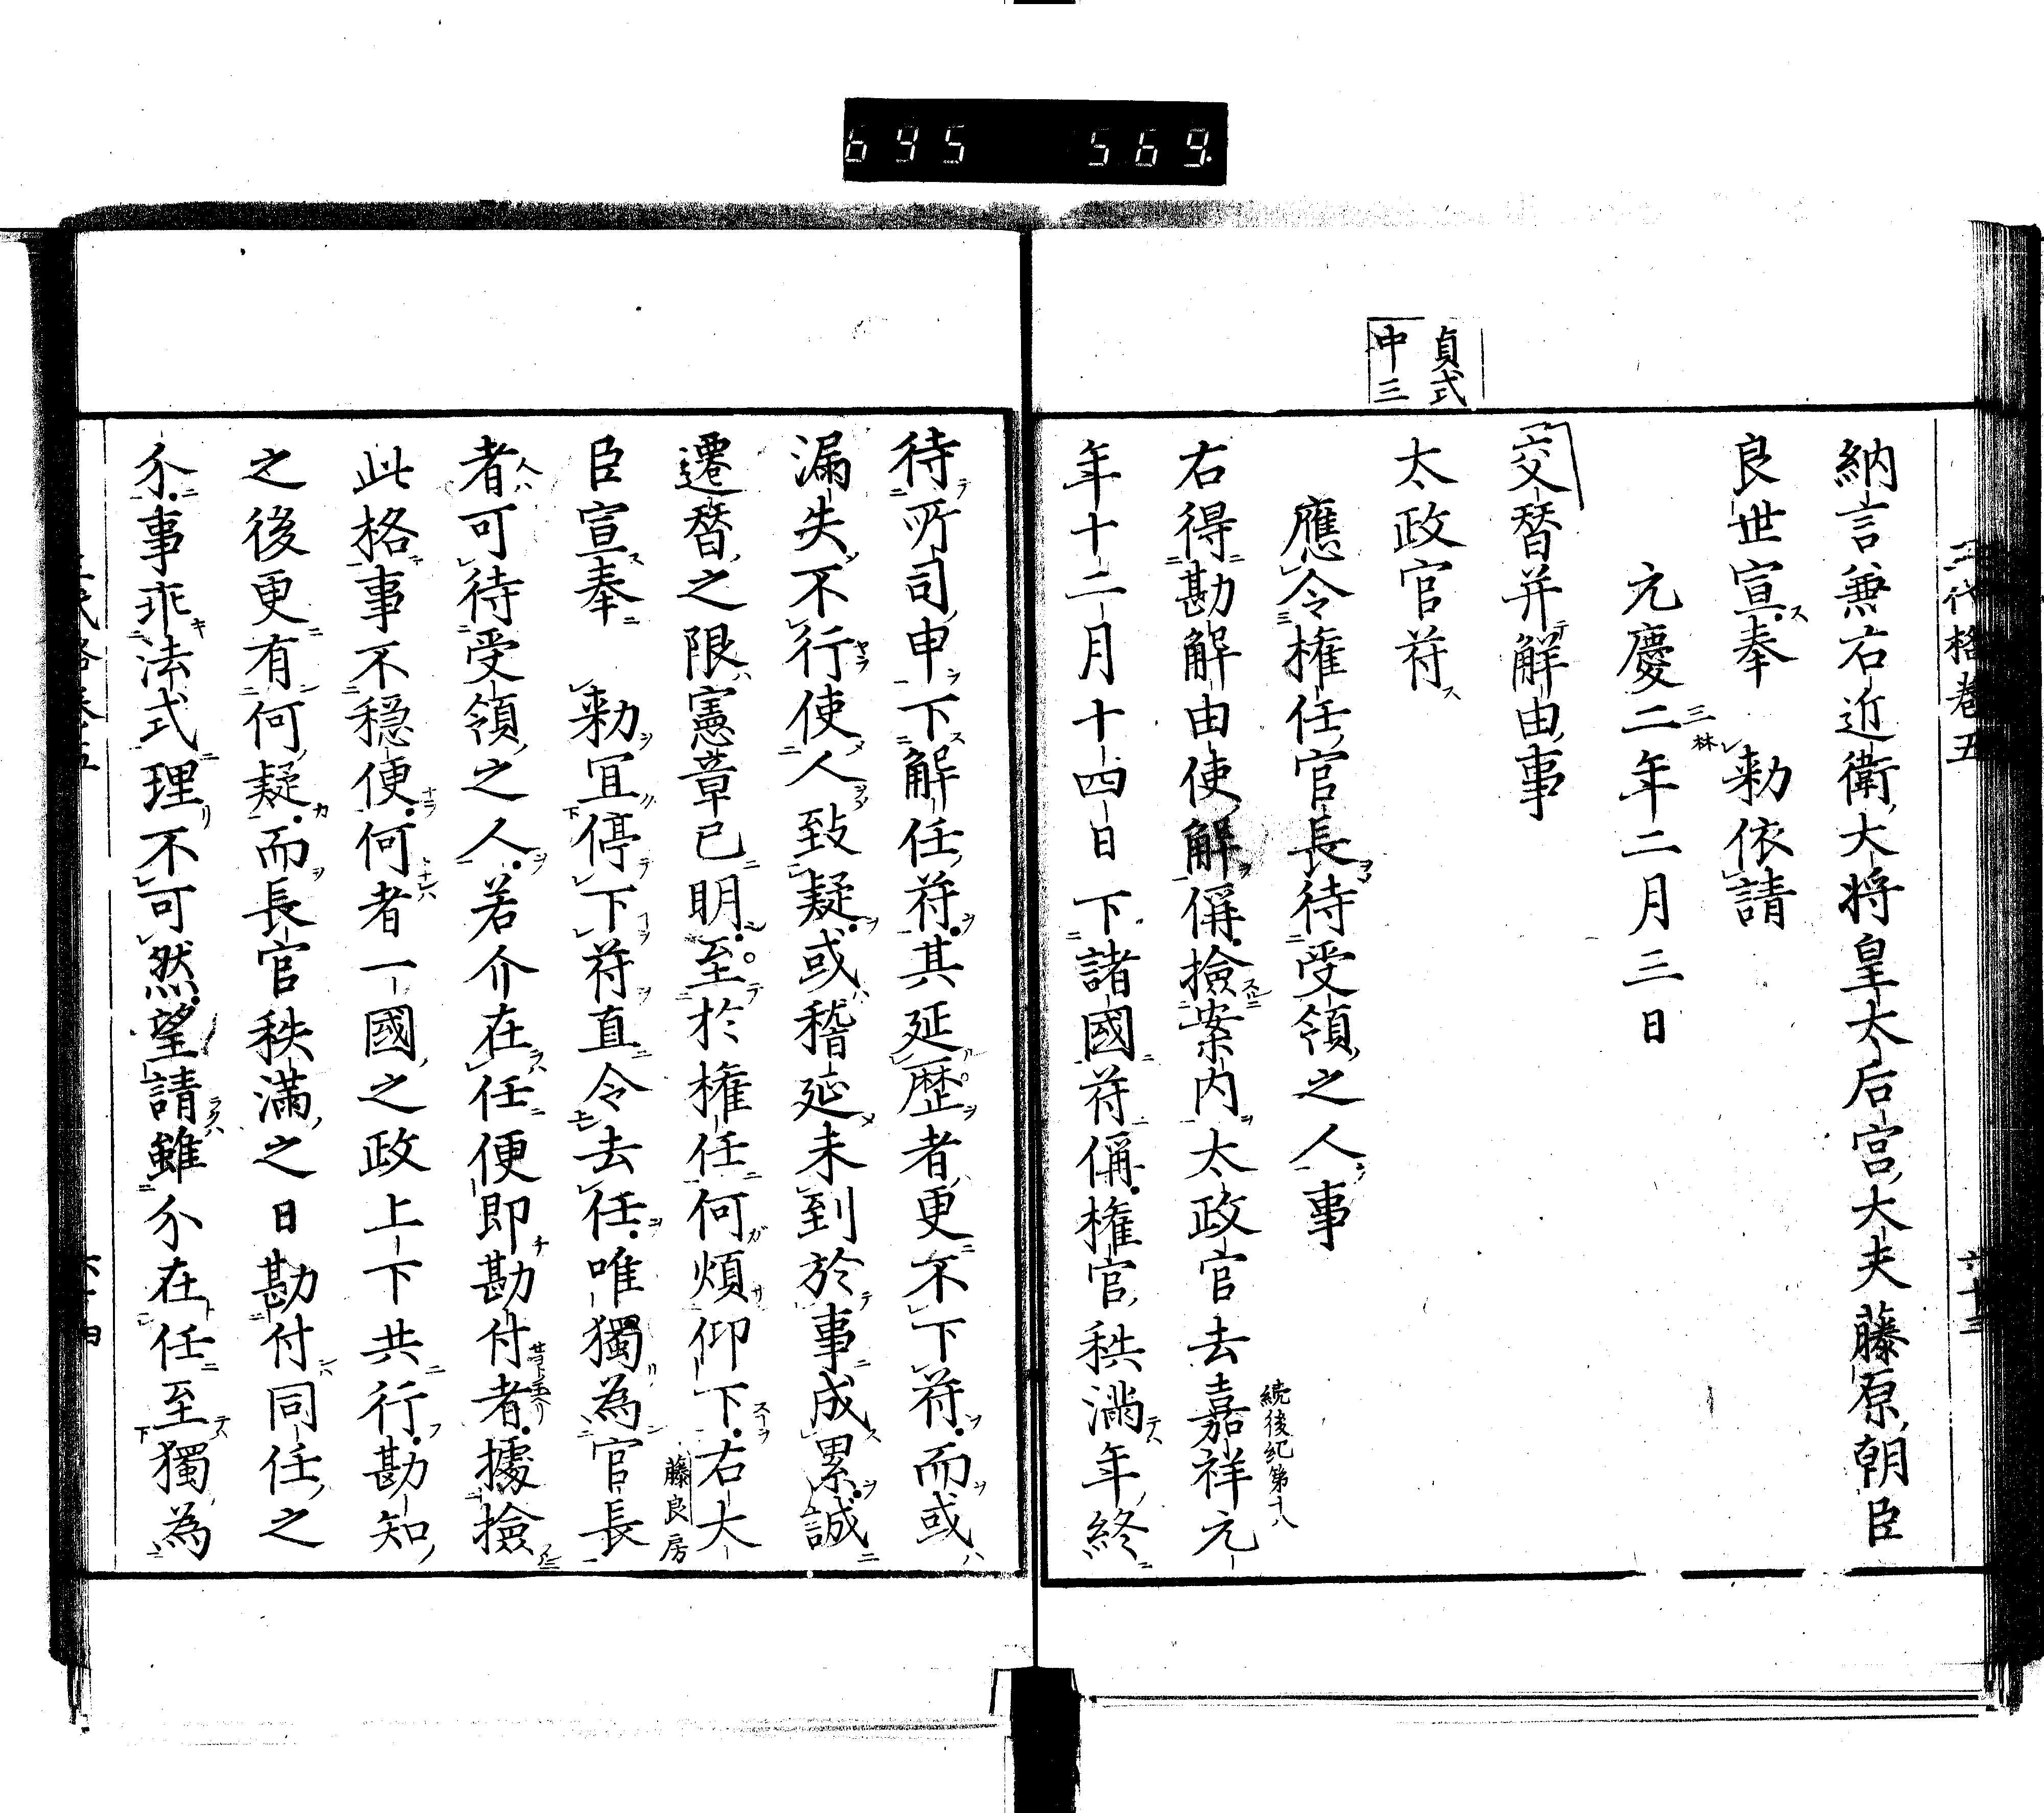 695 569.
三代格卷五 六十三
納言兼右近衛大將皇太后宮大夫藤原朝臣
良世宣奉 勅依請
元慶二年二月三日
三林
交替并解由事
貞式
中三
太政官符
應令權任官長待受領之人事
右得勘解由使解偁撿案内太政官去嘉祥元
続後紀第十八
年十二月十四日下諸國符偁權官秩滿年終
待所司申下解任符其延歷者更不下符而或
漏失不行使人致疑或稽延未到於事成累誠
遷替之限憲章已明至於權任何煩仰下右大
藤良房
臣宣奉 勅宜停下符直令去任唯獨為官長
者可待受領之人若介在任便即勘付者據撿
此格事不穩便何者一國之政上下共行勘知
之後更有何疑而長官秩滿之日勘付同任之
介事乖法式理不可然望請雖介在任至獨為